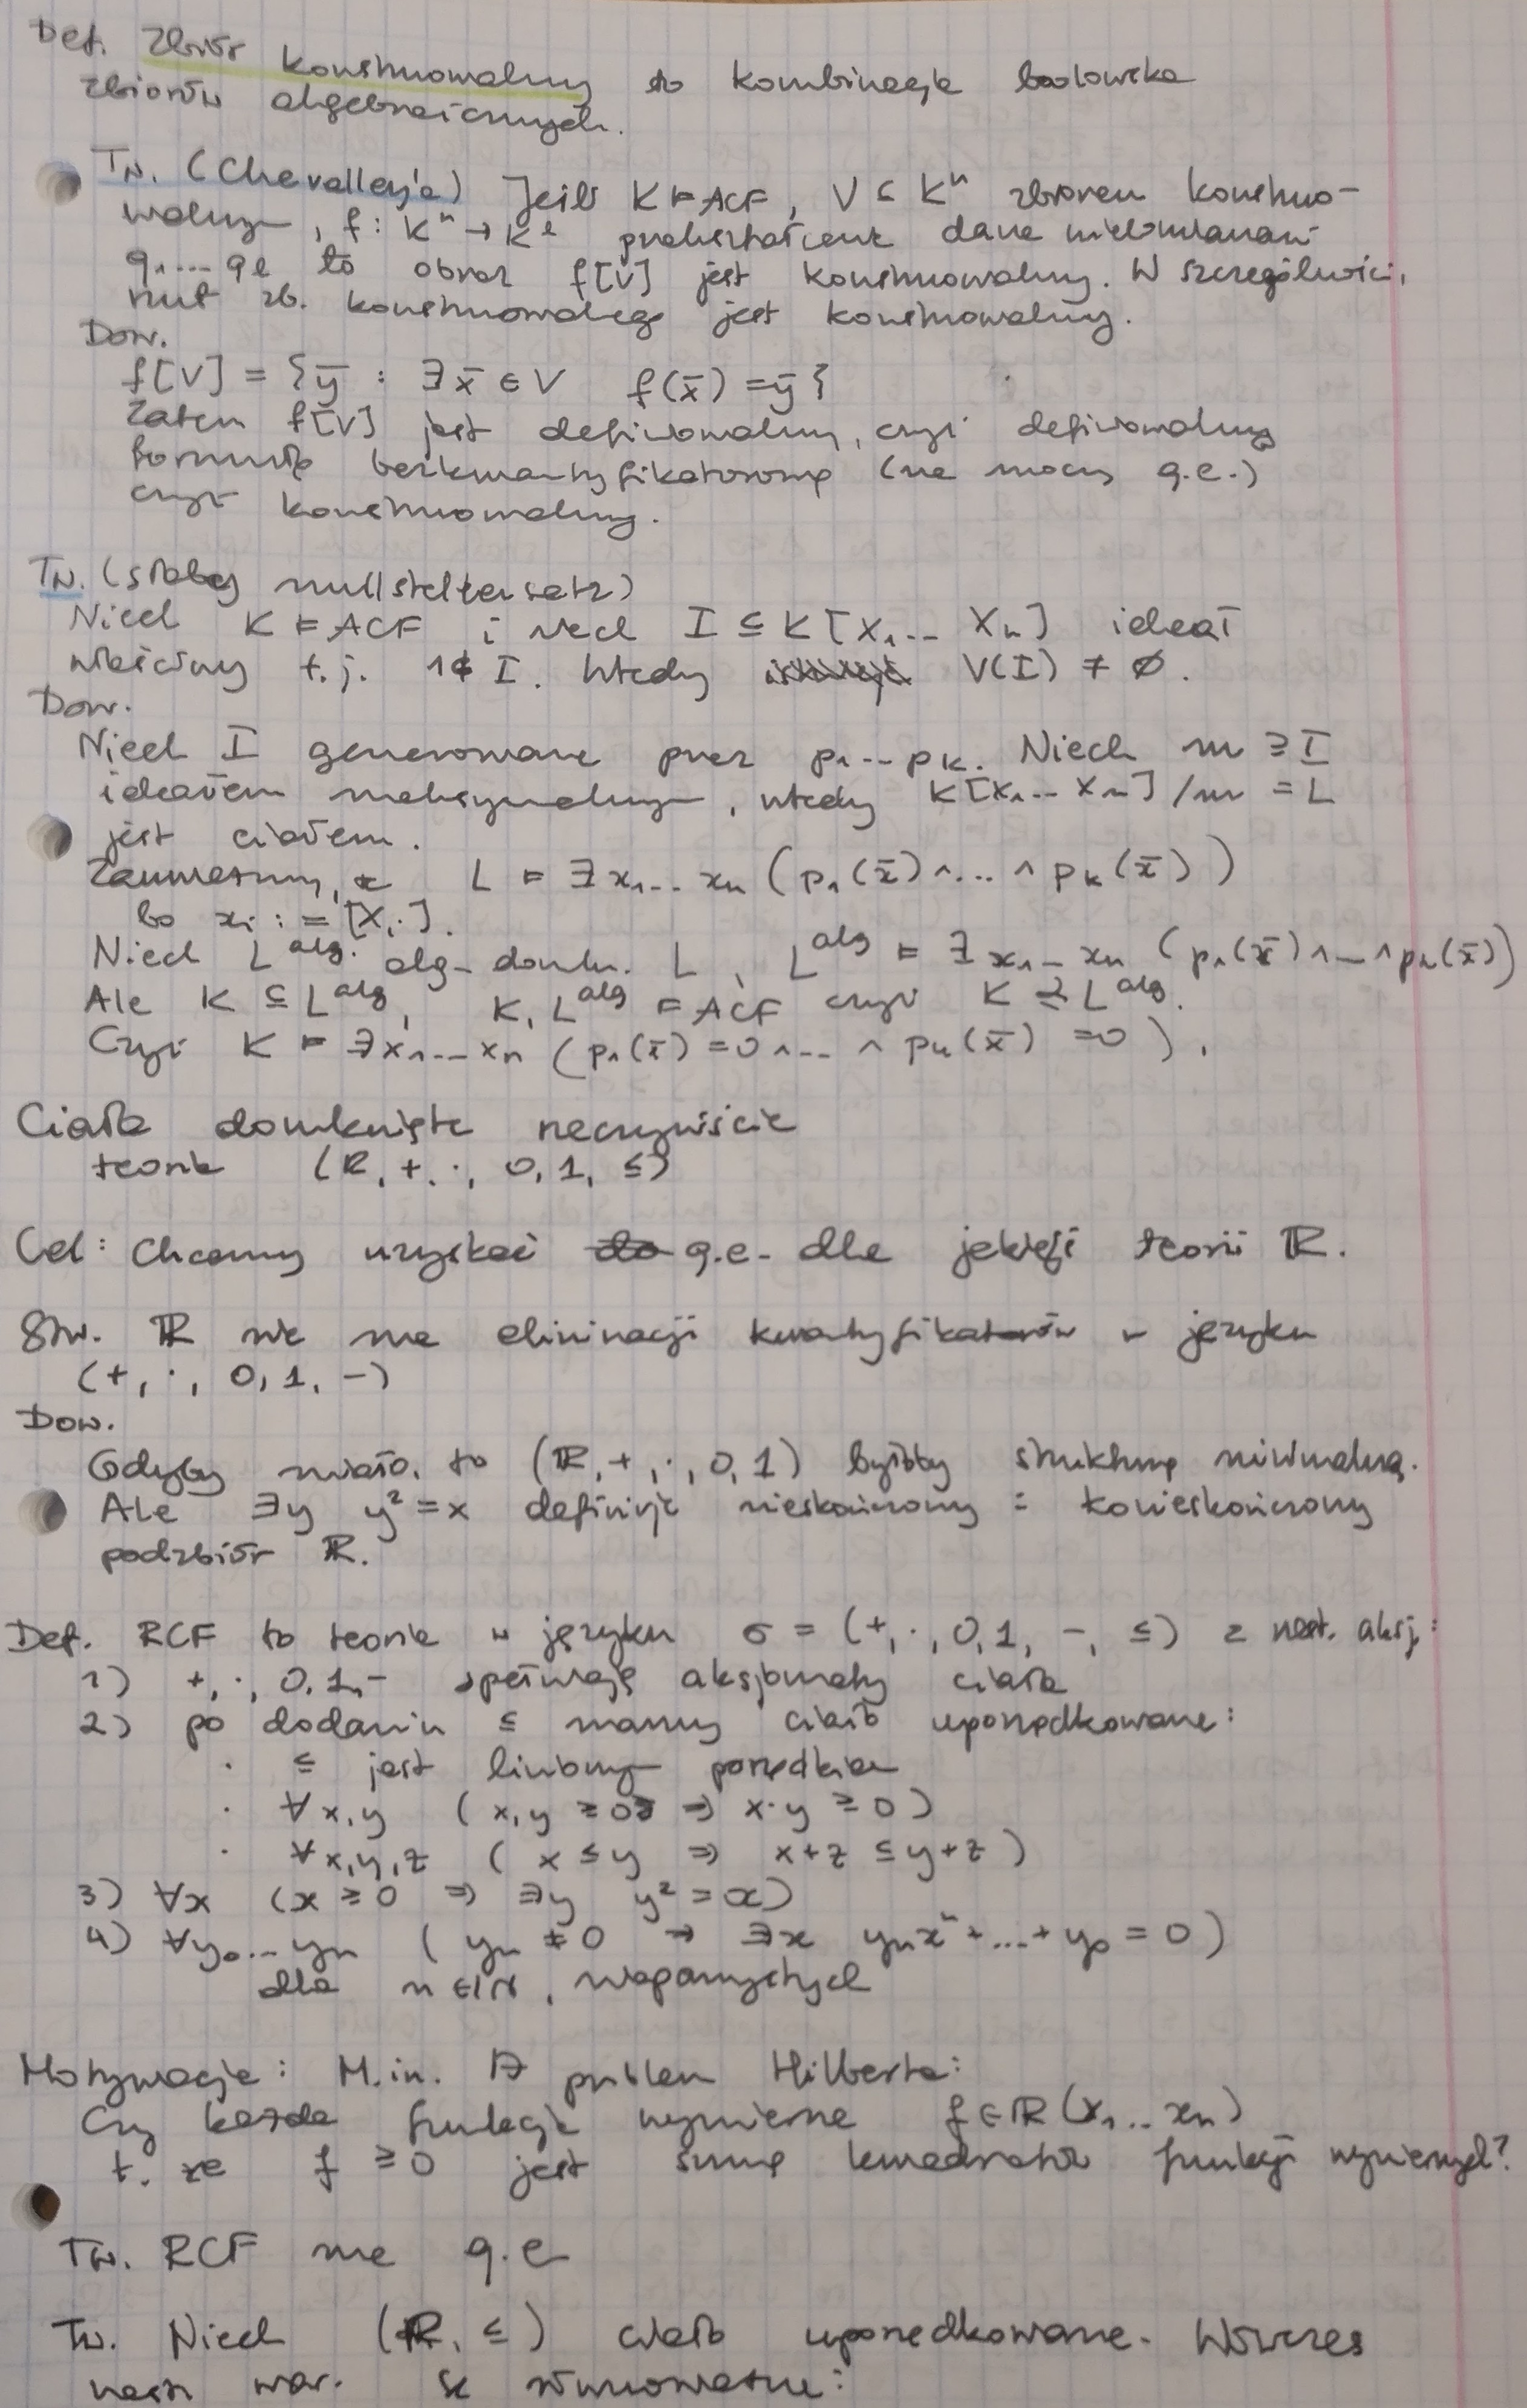 Def. Zbiór konstruowalny to kombinacja boolowska
zbiorów algebraicznych.
Tw. (Chevalley'a) Jeśli K ⊨ ACF, V ⊆ Kⁿ zbiorem konstruo-
walnym, f: Kⁿ → Kˡ przekształcenie dane wielomianami
q₁...qₗ to obraz f[V] jest konstruowalny. W szczególności,
rzut zb. konstruowalnego jest konstruowalny.
Dow.
f[V] = {ȳ : ∃x̄ ∈ V f(x̄) = ȳ}
Zatem f[V] jest definiowalny, czyli definiowalny
formułą bezkwantyfikatorową (na mocy q.e.)
czyli konstruowalny.
Tw. (słaby nullstellensatz)
Niech K ⊨ ACF i niech I ⊆ K[X₁... Xₙ] ideał
właściwy t.j. 1∉ I. Wtedy V(I) ≠ ∅.
Dow.
Niech I generowane przez p₁...pₖ. Niech m ⊇ I
ideałem maksymalnym, wtedy K[X₁... Xₙ]/m = L
jest ciałem.
Zauważmy, że L ⊨ ∃x₁...xₙ (p₁(x̄) ∧...∧ pₖ(x̄))
bo xᵢ := [Xᵢ].
Niech L^alg. alg. domkn. L, L^alg ⊨ ∃x₁...xₙ (p₁(x̄)∧...∧pₖ(x̄))
Ale K ⊆ L^alg, K, L^alg ⊨ ACF czyli K ≼ L^alg.
Czyli K ⊨ ∃x₁...xₙ (p₁(x̄) = 0 ∧... ∧ pₖ(x̄) = 0).
Ciała domknięte rzeczywiście
teoria (ℝ, +, ·, 0, 1, ≤)
Cel: Chcemy uzyskać q.e. dla jakiejś teorii ℝ.
Stw. ℝ nie ma eliminacji kwantyfikatorów w języku
(+, ·, 0, 1, -)
Dow.
Gdyby miało, to (ℝ, +, ·, 0, 1) byłoby strukturą minimalną.
Ale ∃y y² = x definiuje nieskończony i konieskończony
podzbiór ℝ.
Def. RCF to teoria w języku σ = (+, ·, 0, 1, -, ≤) z nast. aksj.:
1) +, ·, 0, 1, - spełniają aksjomaty ciała
2) po dodaniu ≤ mamy ciało uporządkowane:
· ≤ jest liniowym porządkiem
· ∀x,y (x,y ≥ 0 ⇒ x·y ≥ 0)
· ∀x,y,z (x ≤ y ⇒ x+z ≤ y+z)
3) ∀x (x ≥ 0 ⇒ ∃y y² = x)
4) ∀y₀...yₙ (yₙ ≠ 0 → ∃x yₙxⁿ +...+ y₀ = 0)
dla n ∈ ℕ, nieparzystych
Motywacja: M.in. 17 problem Hilberta:
Czy każda funkcja wymierna f ∈ ℝ(x₁...xₙ)
t. że f ≥ 0 jest sumą kwadratów funkcji wymiernych?
Tw. RCF ma q.e
Tw. Niech (R, ≤) ciało uporządkowane. Wówczas
nast. war. są równoważne: